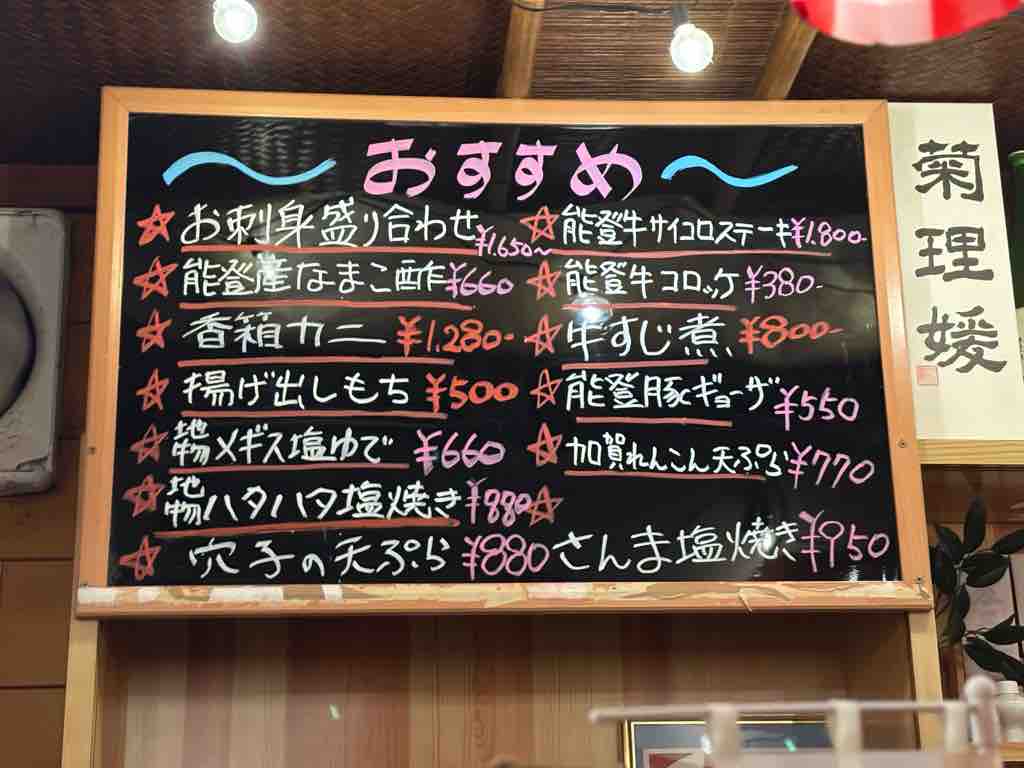 おすすめ
お刺身盛り合わせ ¥1.650~
能登産なまこ酢 ¥660
香箱カニ ¥1.280-
揚げ出しもち ¥500
地物メギス塩ゆで ¥660
地物ハタハタ塩焼き ¥880
穴子の天ぷら ¥880
能登牛サイコロステーキ ¥1.800-
能登牛コロッケ ¥380-
牛すじ煮 ¥800-
能登豚ギョーザ ¥550
加賀れんこん天ぷら ¥770
さんま塩焼き ¥950
菊理媛